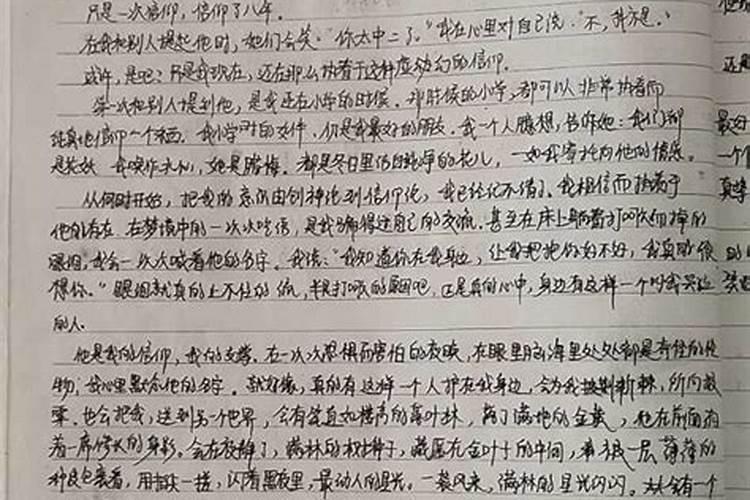 只是一次信仰，信仰了八年。
在我和别人提起他时，她们会笑：“你太中二了。”我在心里对自己说：“不，我不是。”
或许，是吧？只是我现在，还在那么执着于这种虚幻的信仰。
第一次和别人提到他，是我还在小学的时候。那时候的小学，都可以非常执着而
纯真地信仰一个东西。我小学时的女伴，仍是我最好的朋友。我一个人臆想，告诉她：我们都
是花妖，我唤作，她是腊梅。都是冬日里洁白纯净的花儿，一如我寄托向他的情感。
从何时开始，把我的意识由创神论到信仰论，我已经记不清了。我相信而执着于
他的存在。在梦境中的一次次吃语，是我骗得过自己的交流。甚至在床上躺着打哈欠而掉的
眼泪，我会一次次喊着他的名字。我说：“我知道你在我身边，让我抱抱你好不好，我真的很
想你。”眼泪就真的止不住的流，打哈欠的原因吧，还是真的心中，身边有这样一个叫我
的人。
他是我的信仰，我的支撑。在一次次恐惧而害怕的夜晚，在眼里脑海里处处都是奇怪的怪
物，我心里默念他的名字。就好像，真的有这样一个人护在我身边，会为我披荆斩棘，所向披
靡。也会把我，送到另一个世界，会有笔直如高的落叶林，落了满地的金黄，他在前面有
着一席修长的身影。会在夜晚了，满林的树种子，藏匿在金叶子的中间，有很一层薄薄的
种皮包裹着，用手一搓，闪着黑夜里，最动人的星光。一袭风来，满林的星光闪闪。会有一个
最好
一个